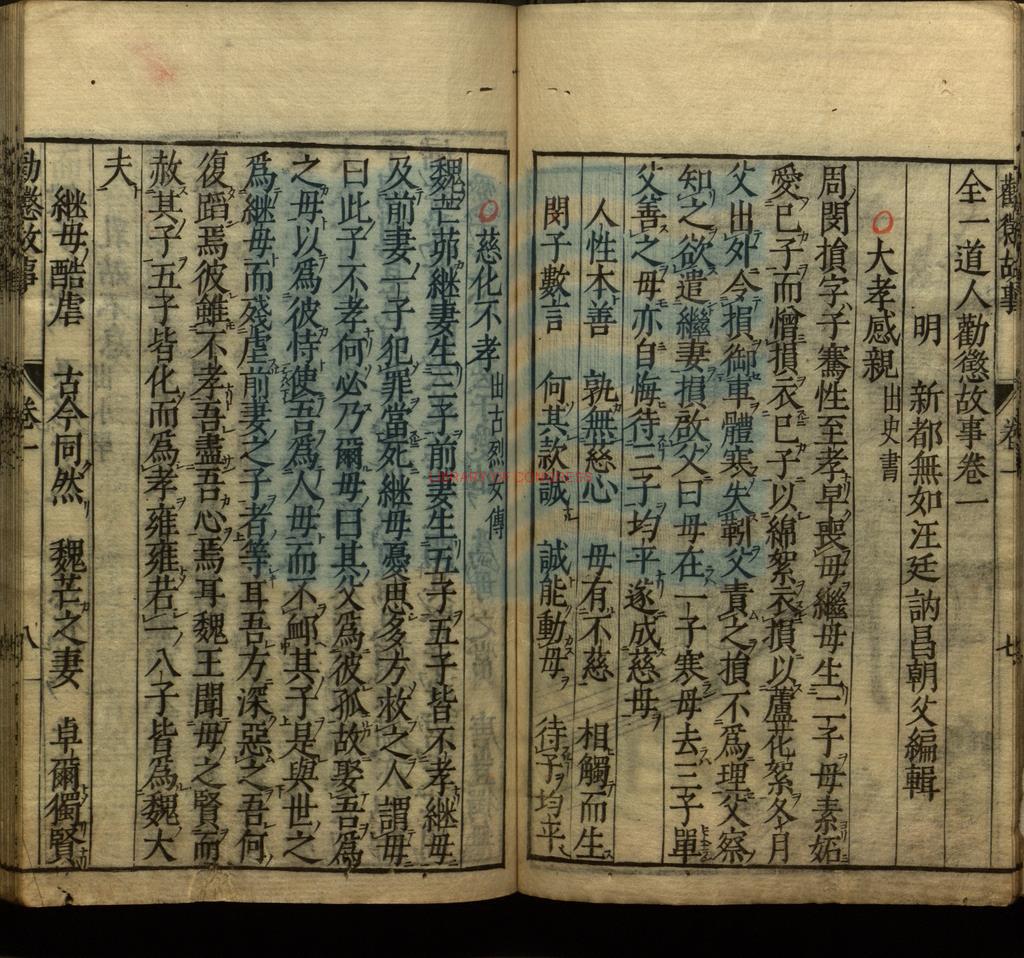 勸懲故事 卷一 七
全一道人勸懲故事卷一
明 新都無如汪廷訥昌朝父編輯
○大孝感親 出史書
周閔損字子騫性至孝早喪母繼母生二子母素妬
愛己子而憎損衣己子以綿絮衣損以蘆花絮冬月
父出外令損御車體寒失靷父責之損不為理父察
知之欲遣繼妻損啟父曰母在一子寒母去三子單
父善之母亦自悔待三子均平遂成慈母
人性本善 孰無慈心 母有不慈 相觸而生
閔子數言 何其款誠 誠能動母 待子均平
○慈化不孝 出古烈女傳
魏芒茆継妻生三子前妻生五子五子皆不孝継母
及前妻一子犯罪當死継母憂思多方救之人謂母
曰此子不孝何必乃爾母曰其父為彼孤故娶吾為
之母以為彼恃使吾為人母而不卹其子是與世之
為継母而殘虐前妻之子者等耳吾方深惡之吾何
復蹈焉彼雖不孝吾盡吾心焉耳魏王聞母之賢而
赦其子五子皆化而為孝雍雍若一八子皆為魏大
夫
継母酷虐 古今同然 魏芒之妻 卓爾獨賢
勸懲故事 卷一 八
LIBRARY OF CONGRESS